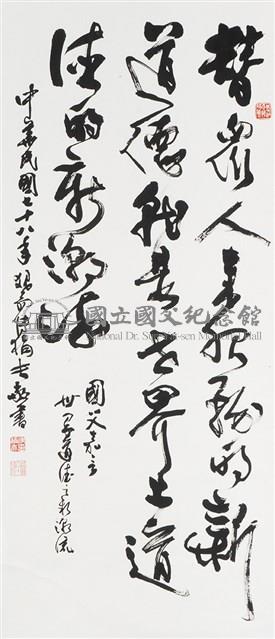 替眾人來服務的新
道德就是世界上道
德的新潮流
國父嘉言
世界道德之新潮流
中華民國七十八年
敬書
國立國父紀念館
National Dr. Sun Yat-sen Memorial Hall